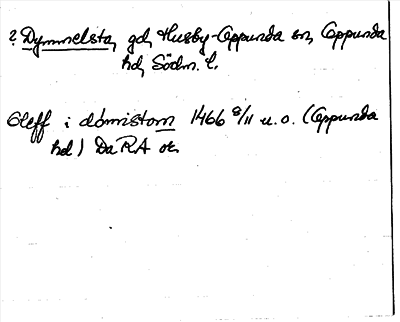 ? Dymmelsta, gd, Husby-Oppunda sn, Oppunda
hd, Södm. l.
Oleff i dömistom 1466 8/11 u.o. (Oppunda
hd) Da RA or.